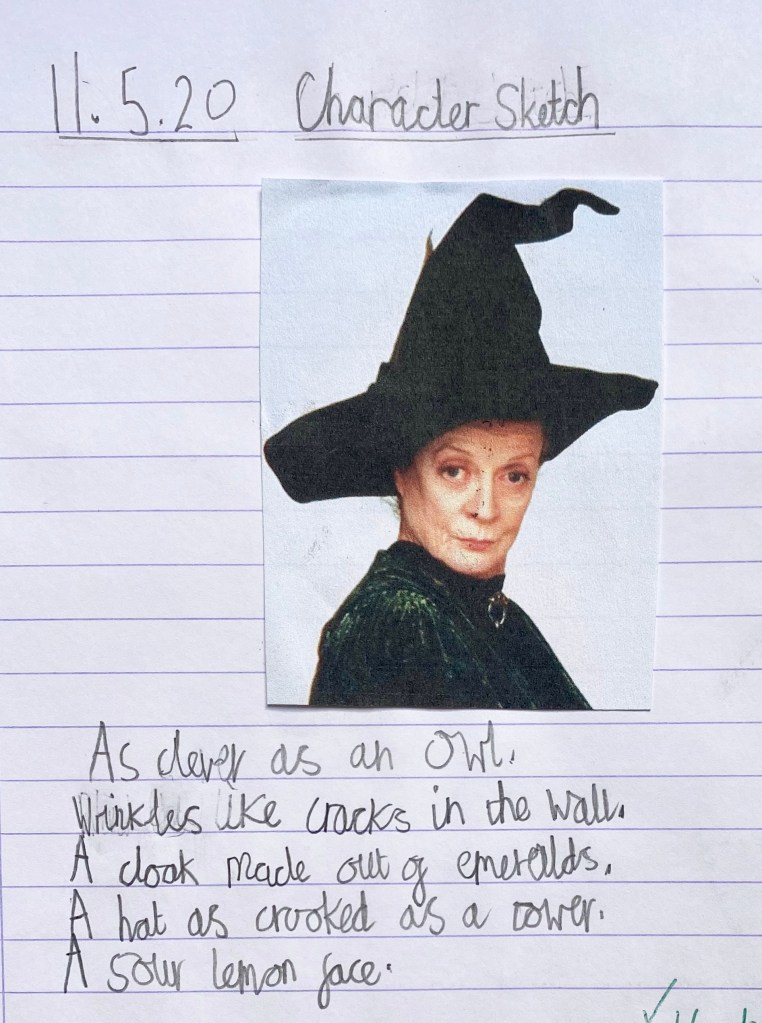 11.5.20 Character Sketch
As clever as an owl.
Wrinkles like cracks in the wall.
A cloak made out of emeralds.
A hat as crooked as a tower.
A sour lemon face.